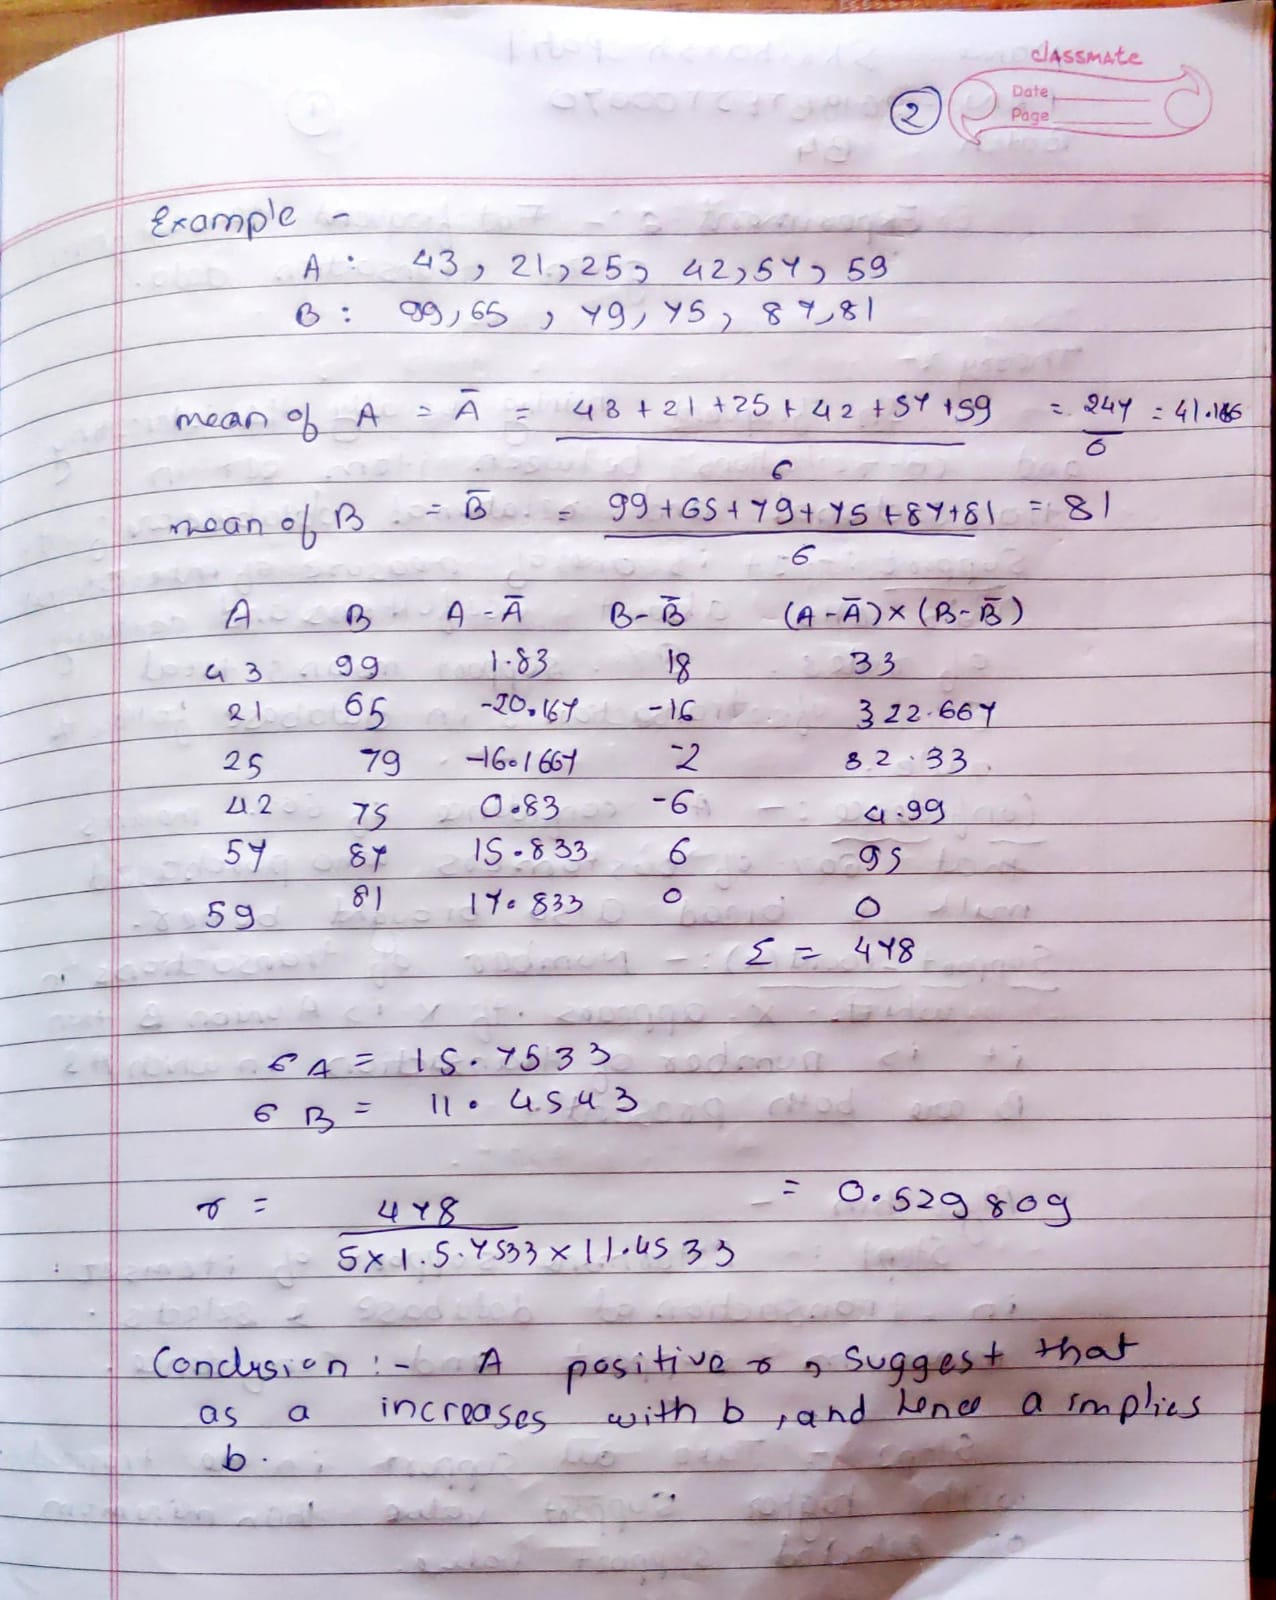 classmate
Date
Page
2
Example -
A : 43, 21, 25, 42, 57, 59
B : 99, 65, 79, 75, 87, 81
mean of A = Ā = 43 + 21 + 25 + 42 + 57 + 59 / 6 = 247 / 6 = 41.166
mean of B = B̄ = 99 + 65 + 79 + 75 + 87 + 81 / 6 = 81
A B A - Ā B - B̄ (A - Ā) × (B - B̄)
43 99 1.83 18 33
21 65 -20.167 -16 322.667
25 79 -16.1667 -2 32.33
42 75 0.83 -6 4.99
57 87 15.833 6 95
59 81 17.833 0 0
Σ = 478
σA = 15.7533
σB = 11.4543
r = 478 / 5 × 15.7533 × 11.4533 = 0.529809
Conclusion :- A positive r, suggest that
as a increases with b, and hence a implies
b.